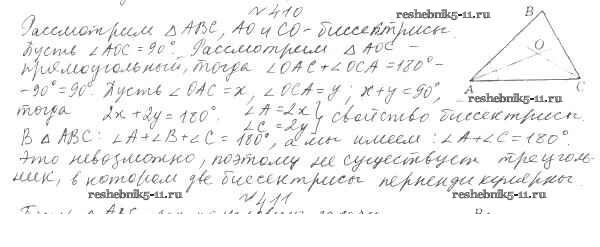 №410
reshebnik5-11.ru
Рассмотрим △ABC, AO и CO - биссектрисы.
Пусть ∠AOC = 90°. Рассмотрим △AOC -
прямоугольный, тогда ∠OAC + ∠OCA = 180° -
- 90° = 90°. Пусть ∠OAC = x, ∠OCA = y; x + y = 90°,
тогда 2x + 2y = 180°. ∠A = 2x } свойство биссектрисы.
∠C = 2y
В △ABC: ∠A + ∠B + ∠C = 180°, а мы имеем: ∠A + ∠C = 180°.
Это невозможно, поэтому не существует треуголь-
ник, в котором две биссектрисы перпендикулярны.
B
O
A
C
reshebnik5-11.ru
reshebnik5-11.ru
№411